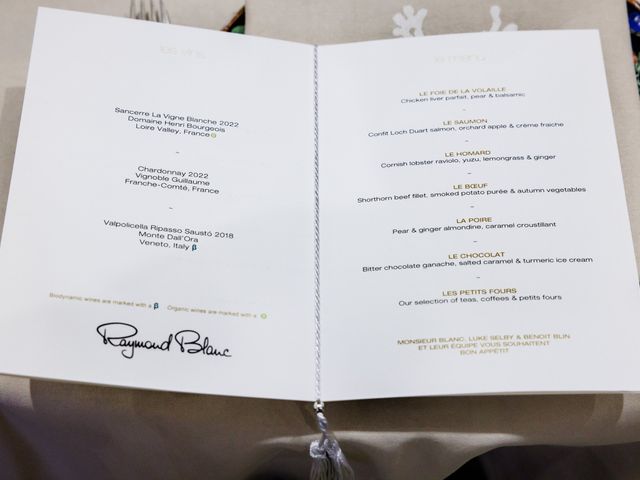 les vins
Sancerre La Vigne Blanche 2022
Domaine Henri Bourgeois
Loire Valley, France
-
Chardonnay 2022
Vignoble Guillaume
Franche-Comté, France
-
Valpolicella Ripasso Saustó 2018
Monte Dall'Ora
Veneto, Italy β
Biodynamic wines are marked with a β Organic wines are marked with a
Raymond Blanc
le menu
LE FOIE DE LA VOLAILLE
Chicken liver parfait, pear & balsamic
-
LE SAUMON
Confit Loch Duart salmon, orchard apple & crème fraiche
-
LE HOMARD
Cornish lobster raviolo, yuzu, lemongrass & ginger
-
LE BŒUF
Shorthorn beef fillet, smoked potato purée & autumn vegetables
-
LA POIRE
Pear & ginger almondine, caramel croustillant
-
LE CHOCOLAT
Bitter chocolate ganache, salted caramel & turmeric ice cream
-
LES PETITS FOURS
Our selection of teas, coffees & petits fours
MONSIEUR BLANC, LUKE SELBY & BENOIT BLIN
ET LEUR ÉQUIPE VOUS SOUHAITENT
BON APPÉTIT